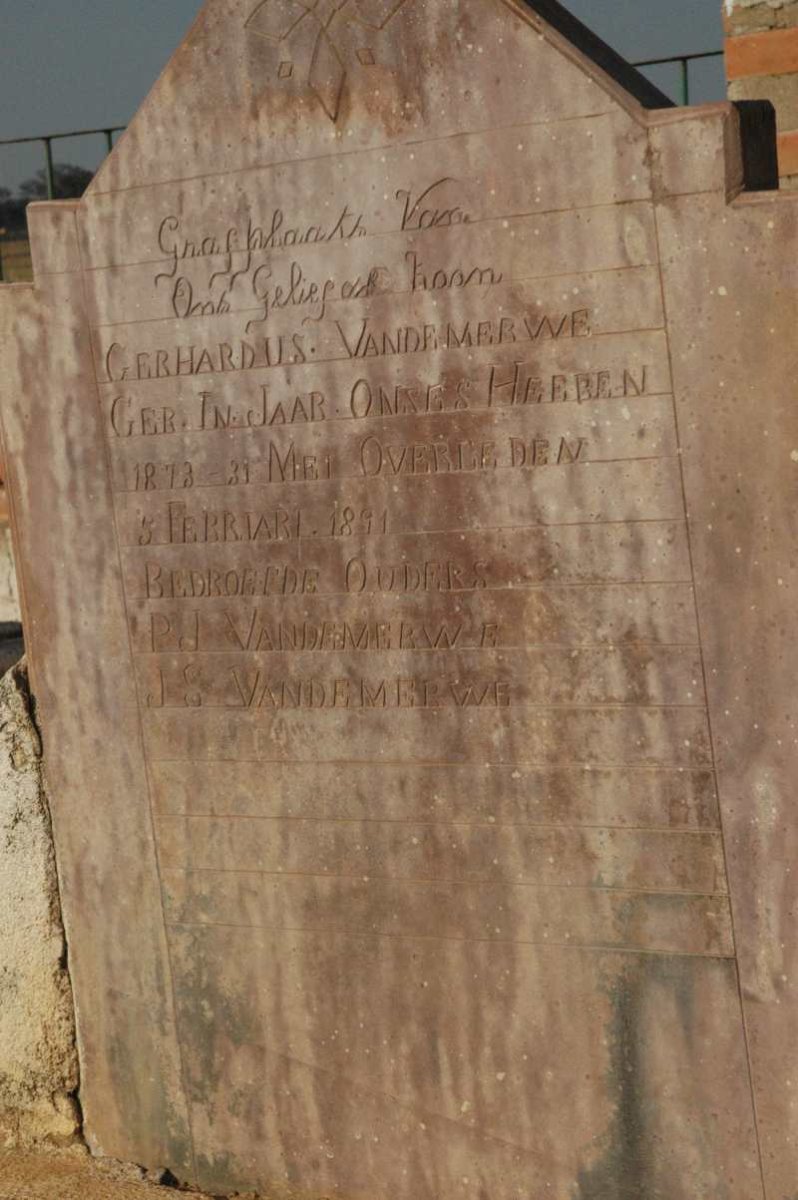 Grafplaats Van
Ons Geliefde Zoon
GERHARDUS. VANDEMERWE
GEB. IN. JAAR. ONSES HEEREN
1873 - 31 MEI OVERLEDEN
5 FEBRIARI. 1891
BEDROEFDE OUDERS
P J VANDEMERWE
J S VANDEMERWE